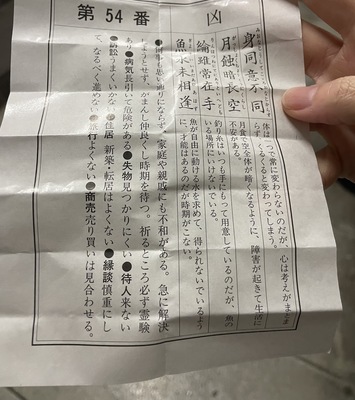 凶
第54番
身同意不同
体は一つで常に変わらないのだが、心は考えがまとま
らず、くるくると変わってしまう。
月蝕暗長空
月食で空全体が暗くなるように、障害が起きて生活に
不安がある。
綸雖常在手
釣り糸はいつも手にもって用意しているのだが、魚の
いる場所にいけないでいる。
魚水未相逢
魚が自由に動ける水を求めて、得られないでいるよう
に才能はあるのだが時期がこない。
思い通りにならず、家庭や親戚にも不和がある。急に解決
しようとせず、がまんし仲良くし時期を待つ。祈るところ必ず霊験
あり●病気長引いて危険がある●失物見つかりにくい●待人来ない
●訴訟うまくいかない●住居 新築・転居はよくない●縁談慎重にし
て、なるべく進めない●旅行よくない●商売売り買いは見合わせる。